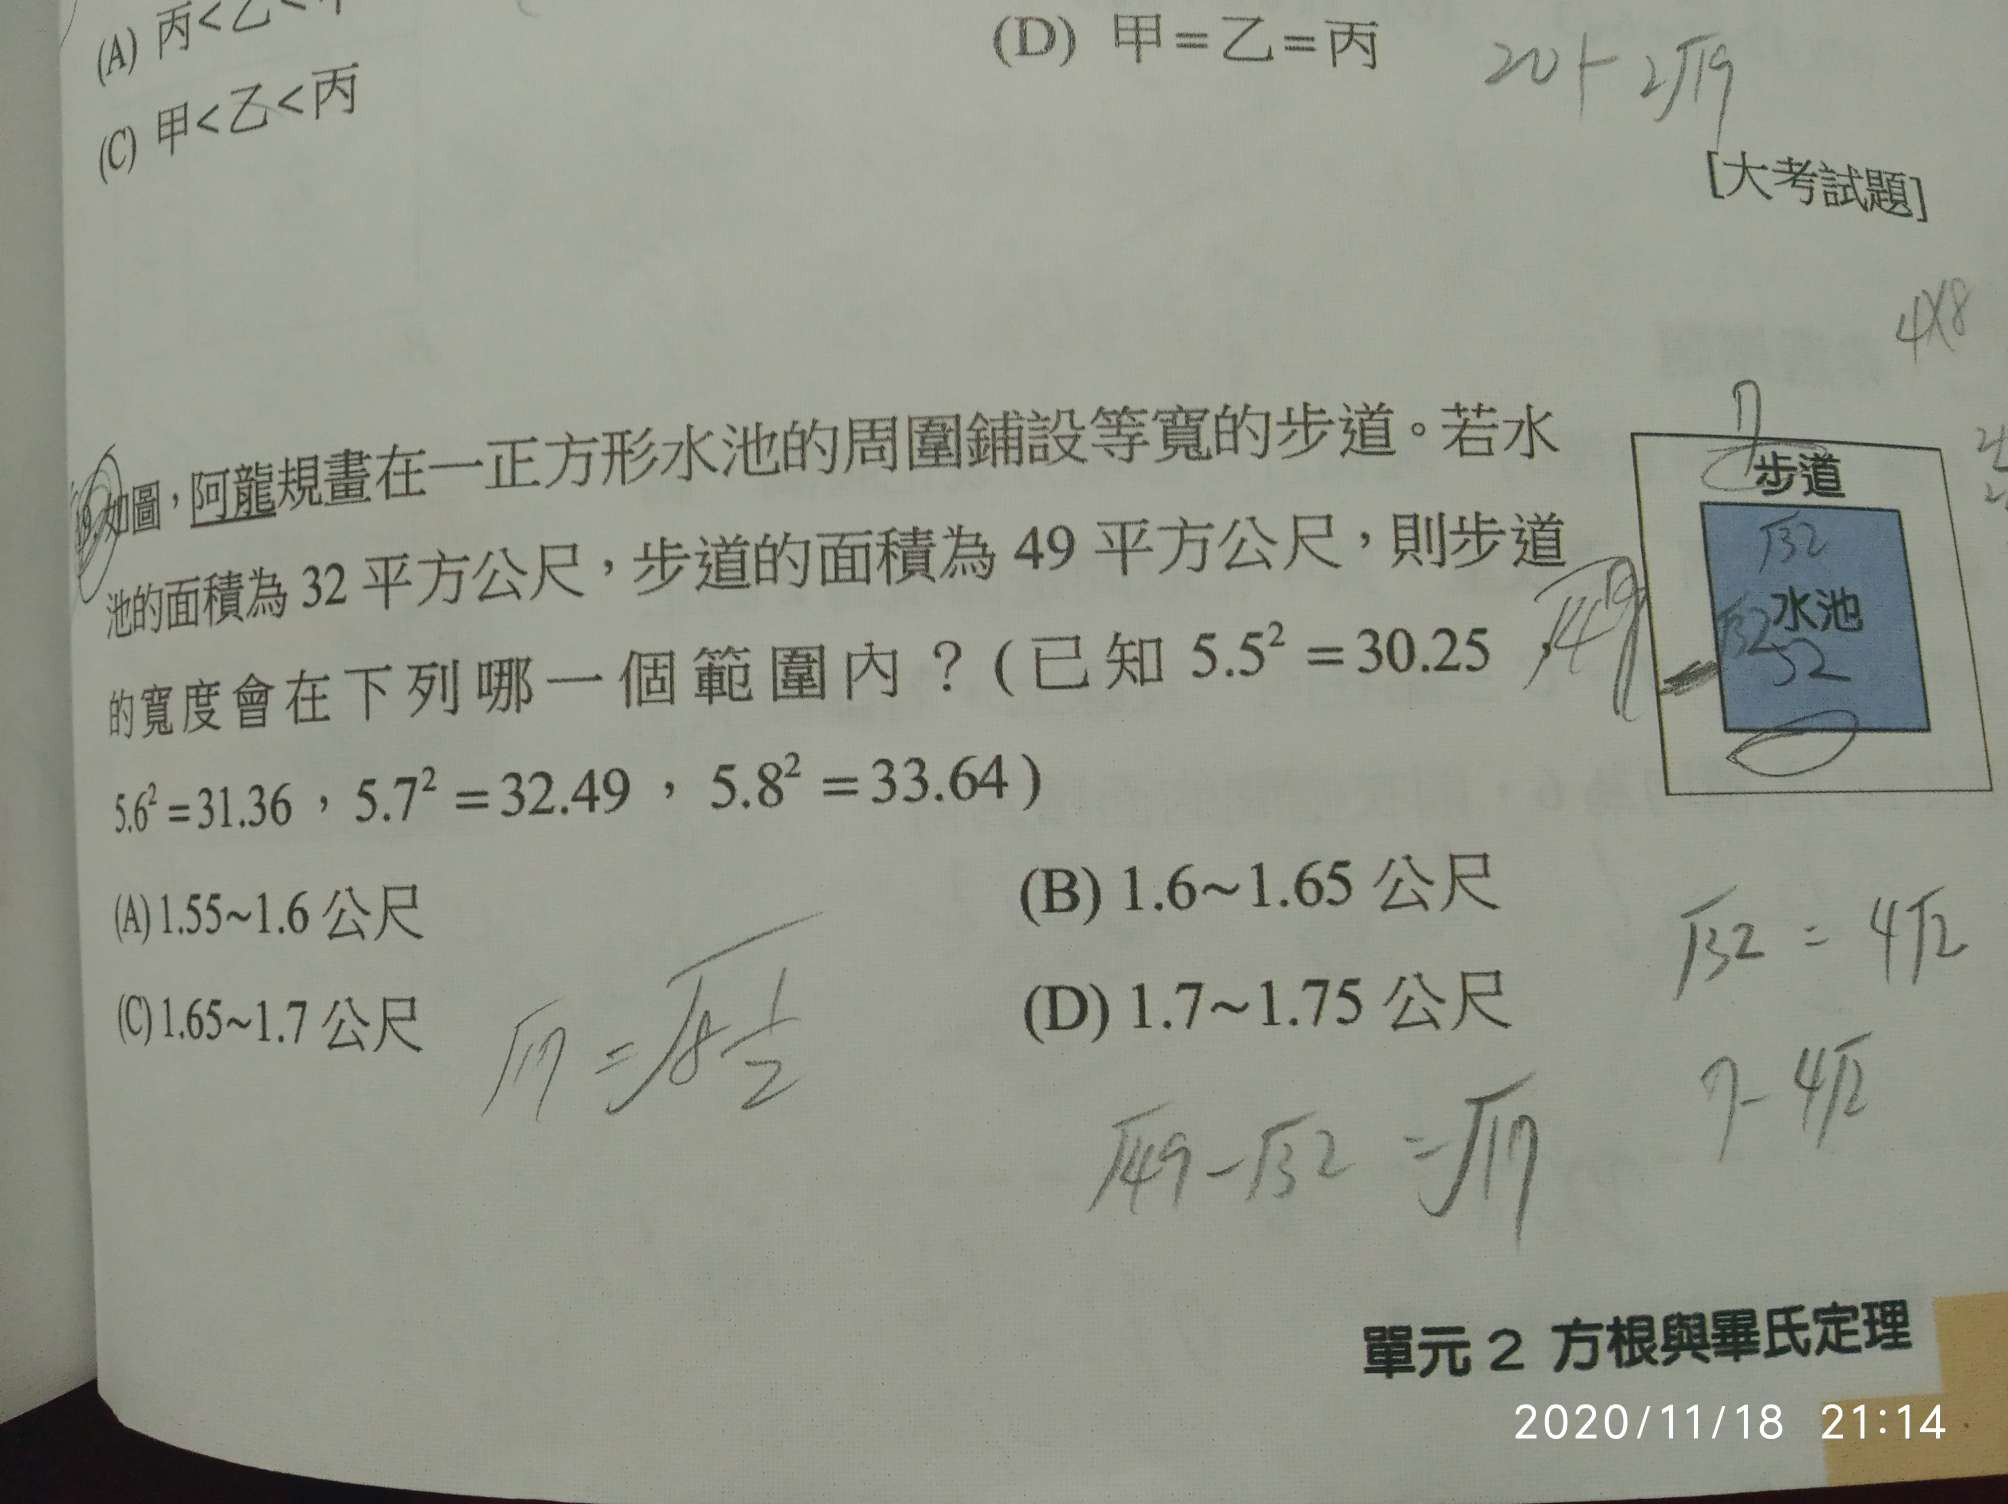 (A) 丙<乙<甲
(D) 甲=乙=丙
20+2√19
(C) 甲<乙<丙
[大考試題]
4×8
19.如圖,阿龍規畫在一正方形水池的周圍鋪設等寬的步道。若水
池的面積為 32 平方公尺,步道的面積為 49 平方公尺,則步道
的寬度會在下列哪一個範圍內?(已知 5.5² =30.25 ,
5.6² =31.36 , 5.7² =32.49 , 5.8² =33.64 )
7
步道
√32
水池
√32
32
√49
(A) 1.55~1.6 公尺
(B) 1.6~1.65 公尺
(C) 1.65~1.7 公尺
(D) 1.7~1.75 公尺
√32 = 4√2
√17 = √8 1/2
7-4√2
√49-√32 =√17
單元 2 方根與畢氏定理
2020/11/18 21:14